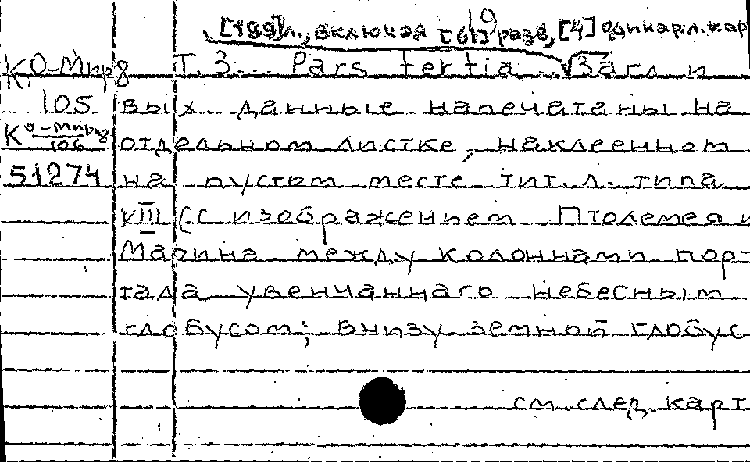 [199] л., включая [61] разв., [4] один. карл. кар
К.О-Мирд Т. 3. Pars tertia. Загл. и
105 вых. данные напечатаны на
К О-Мирд 106 отдельном листке, наклеенном
51274 на пустом месте тит. л. типа
VIII (с изображением Птолемея и
Марина между колоннами пор-
тала увенчанного небесным
глобусом; внизу земной глобус
см. след. карт